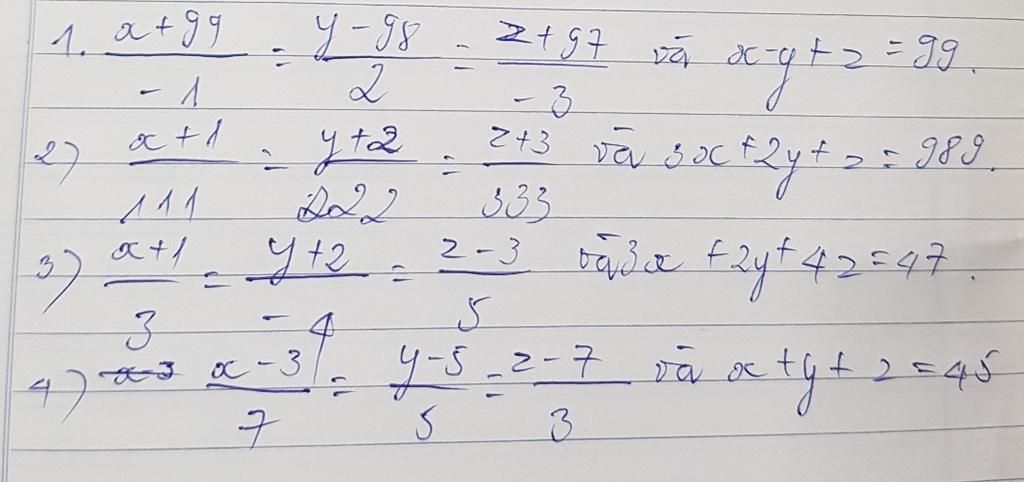 1. (x+99)/(-1) = (y-98)/2 = (z+97)/(-3) và x-y+z=99.
2) (x+1)/111 = (y+2)/222 = (z+3)/333 và 3x+2y+z=989.
3) (x+1)/3 = (y+2)/(-4) = (z-3)/5 và 3x+2y+4z=47.
4) (x-3)/7 = (y-5)/5 = (z-7)/3 và x+y+z=45